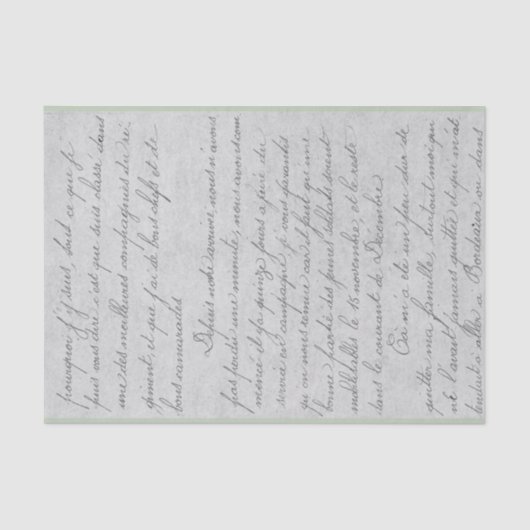 pourquoi j'y suis, tout ce que je
puis vous dire c'est que je suis classé dans
une des meilleures compagnies du ré-
giment, et que j'ai de bons chefs et de
bons camarades
Depuis notre arrivée nous n'avons
pas perdu une minute, nous avons com
mencé il y a quinze jours à faire du
service en campagne, je vous garantis
qu'on nous remue car il faut qu'une
bonne partie des jeunes soldats soient
mobilisables le 15 novembre et le reste
dans le courant de Décembre
Ça m'a été un peu dur de
quitter ma famille, surtout moi qui
ne l'avait jamais quittée et qui m'at
tendait à aller à Bordeaux ou dans